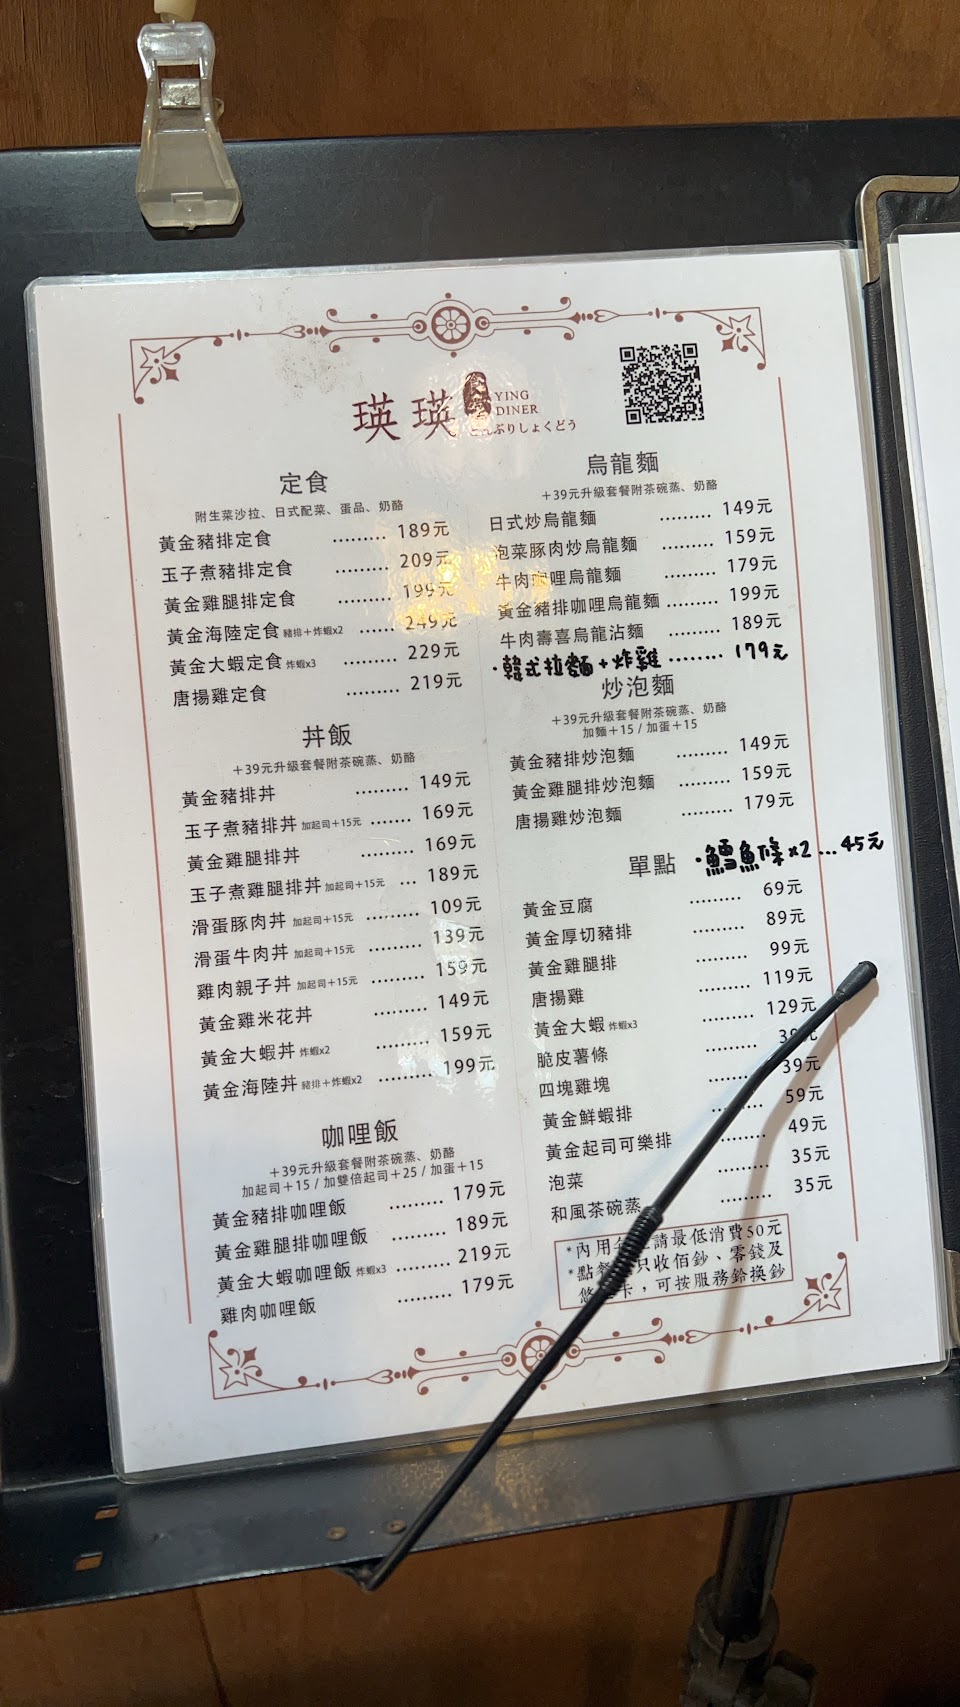 瑛瑛
YING
DINER
ぶりしょくどう
定食
附生菜沙拉、日式配菜、蛋品、奶酪
黃金豬排定食 ......... 189元
玉子煮豬排定食 ......... 209元
黃金雞腿排定食 ......... 199元
黃金海陸定食 豬排+炸蝦x2 ...... 249元
黃金大蝦定食 炸蝦x3 ......... 229元
唐揚雞定食 ......... 219元
丼飯
+39元升級套餐附茶碗蒸、奶酪
黃金豬排丼 ......... 149元
玉子煮豬排丼 加起司+15元 ......... 169元
黃金雞腿排丼 ......... 169元
玉子煮雞腿排丼 加起司+15元 ... 189元
滑蛋豚肉丼 加起司+15元 ......... 109元
滑蛋牛肉丼 加起司+15元 ......... 139元
雞肉親子丼 加起司+15元 ......... 159元
黃金雞米花丼 ......... 149元
黃金大蝦丼 炸蝦x2 ......... 159元
黃金海陸丼 豬排+炸蝦x2 ......... 199元
咖哩飯
+39元升級套餐附茶碗蒸、奶酪
加起司+15 / 加雙倍起司+25 / 加蛋+15
黃金豬排咖哩飯 ......... 179元
黃金雞腿排咖哩飯 ......... 189元
黃金大蝦咖哩飯 炸蝦x3 ......... 219元
雞肉咖哩飯 ......... 179元
烏龍麵
+39元升級套餐附茶碗蒸、奶酪
日式炒烏龍麵 ......... 149元
泡菜豚肉炒烏龍麵 ......... 159元
牛肉咖哩烏龍麵 ......... 179元
黃金豬排咖哩烏龍麵 ......... 199元
牛肉壽喜烏龍沾麵 ......... 189元
·韓式拉麵+炸雞 ........ 179元
炒泡麵
+39元升級套餐附茶碗蒸、奶酪
加麵+15 / 加蛋+15
黃金豬排炒泡麵 ......... 149元
黃金雞腿排炒泡麵 ......... 159元
唐揚雞炒泡麵 ......... 179元
單點 ·鱈魚條x2 ... 45元
黃金豆腐 ......... 69元
黃金厚切豬排 ......... 89元
黃金雞腿排 ......... 99元
唐揚雞 ......... 119元
黃金大蝦 炸蝦x3 ......... 129元
脆皮薯條 ......... 39元
四塊雞塊 ......... 39元
黃金鮮蝦排 ......... 59元
黃金起司可樂排 ......... 49元
泡菜 ......... 35元
和風茶碗蒸 ......... 35元
*內用 請最低消費50元
*點餐 只收佰鈔、零錢及
悠 卡，可按服務鈴換鈔